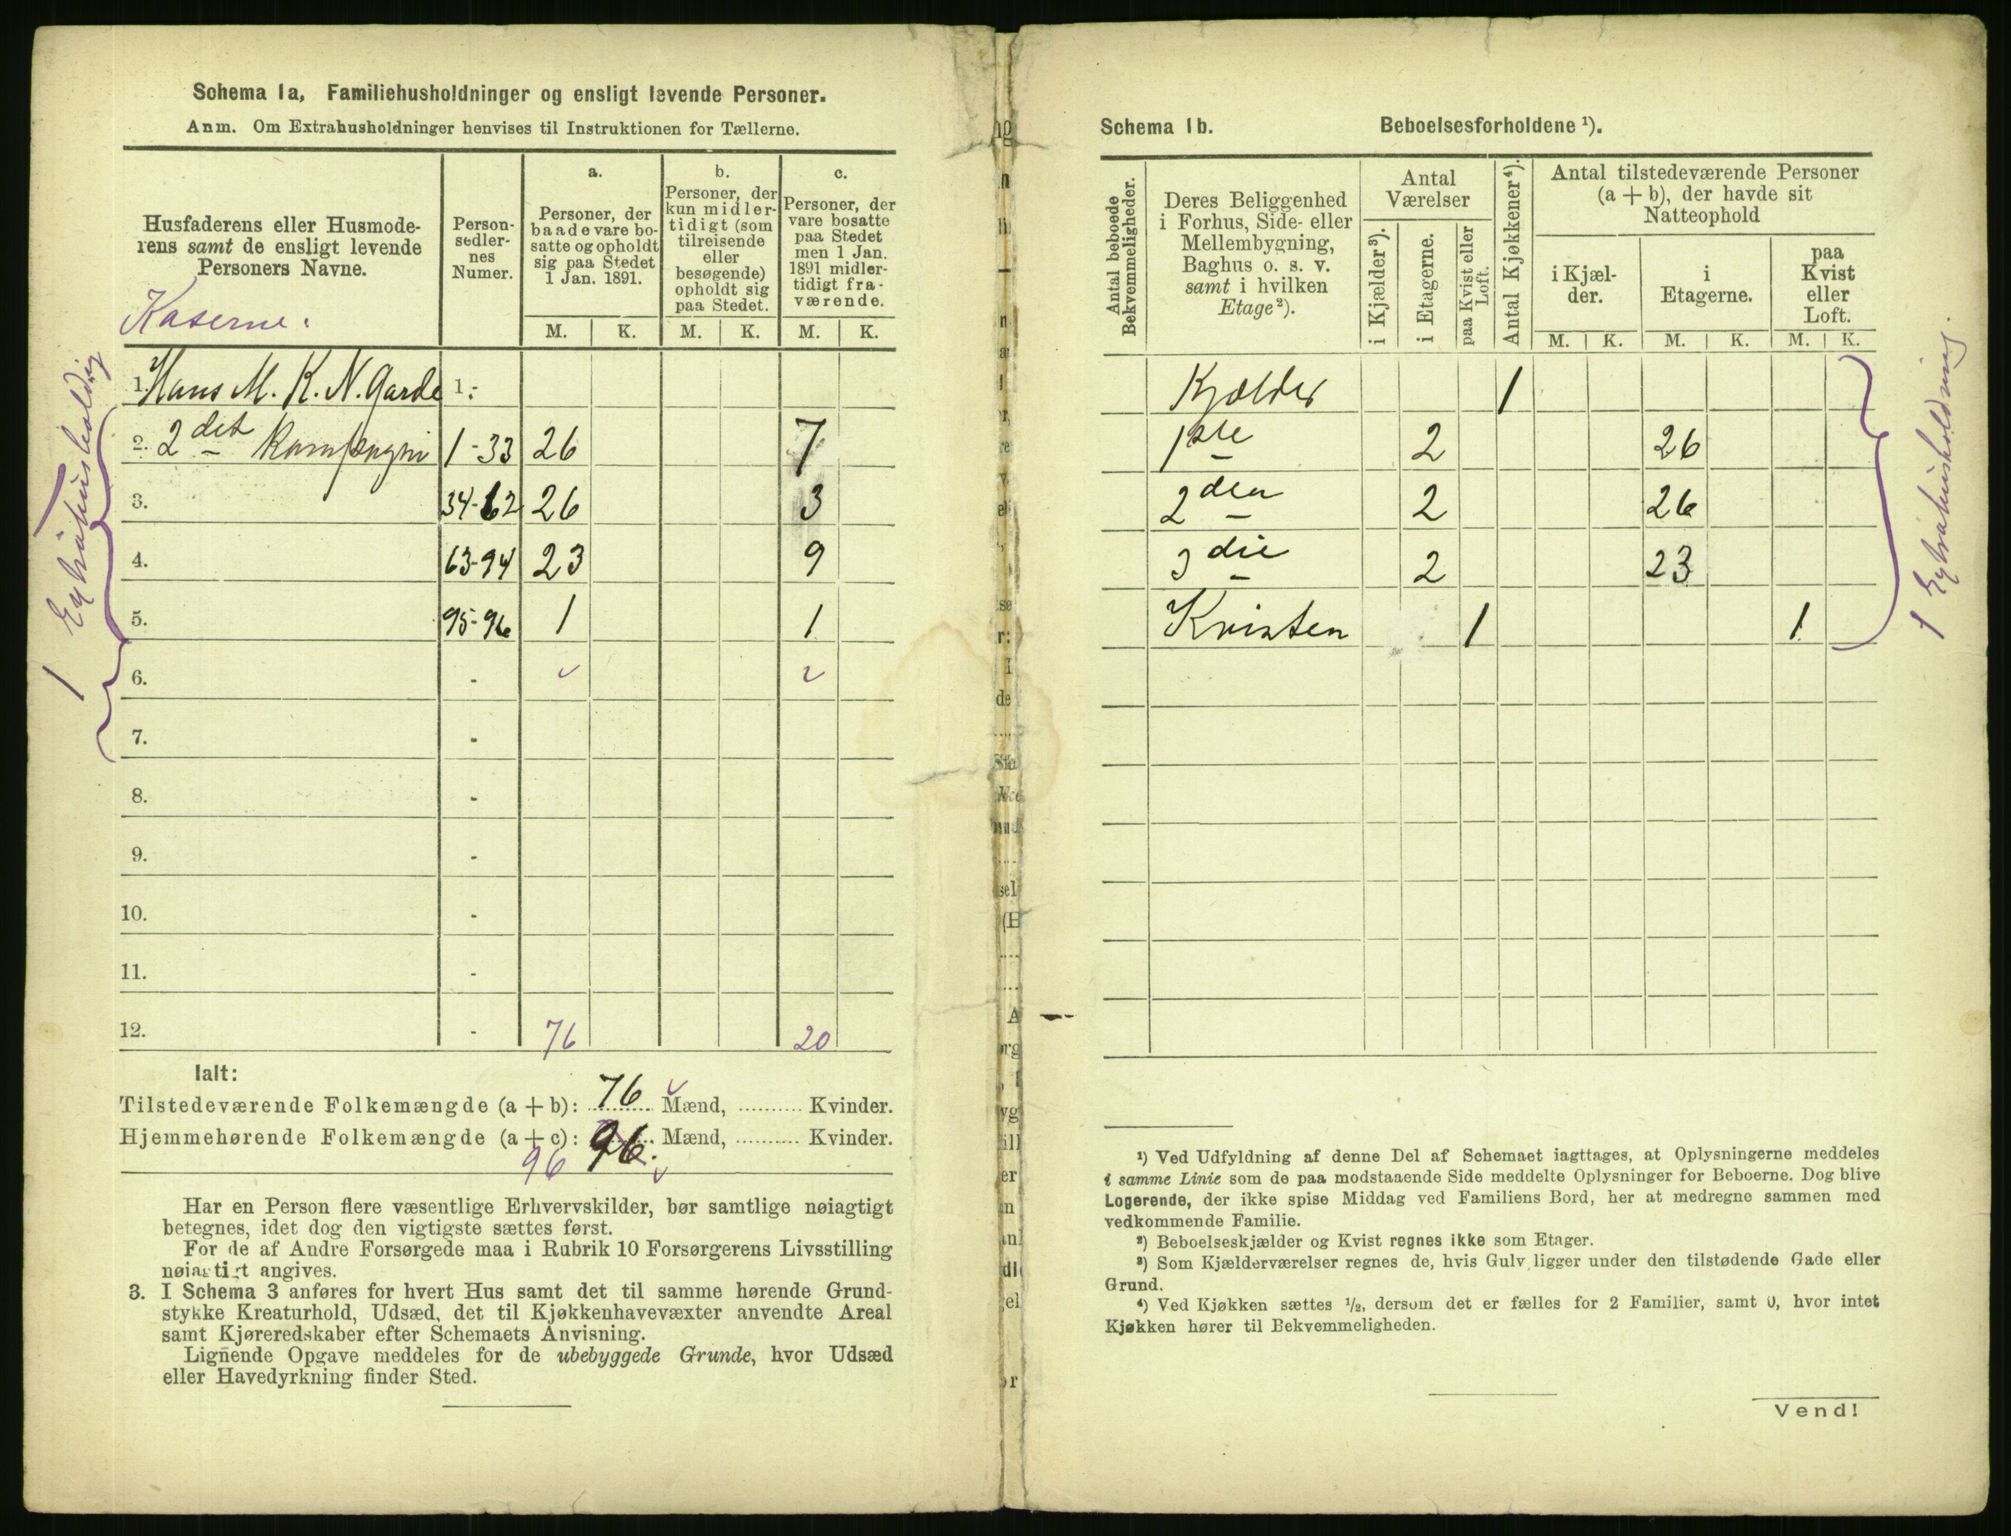 Schema 1a, Familiehusholdninger og ensligt levende Personer.
Anm. Om Extrahusholdninger henvises til Instruktionen for Tællerne.
Husfaderens eller Husmoderens samt de ensligt levende Personers Navne.
Personsedlernes Numer.
a.
Personer, der baade vare bosatte og opholdt sig paa Stedet 1 Jan. 1891.
b.
Personer, der kun midlertidigt (som tilreisende eller besøgende) opholdt sig paa Stedet.
c.
Personer, der vare bosatte paa Stedet men 1 Jan. 1891 midlertidigt fraværende.
M. K. M. K. M. K.
Kaserne.
1 Extrahusholdning
1. Hans M. K. N. Garde 1 -
2. 2det Kompagni 1-33 26 7
3. 34-62 26 3
4. 63-94 23 9
5. 95-96 1 1
6. -
7. -
8. -
9. -
10. -
11. -
12. - 76 20
Ialt:
Tilstedeværende Folkemængde (a + b): 76 Mænd, ........... Kvinder.
Hjemmehørende Folkemængde (a + c): 96. Mænd, ........... Kvinder.
96
Har en Person flere væsentlige Erhvervskilder, bør samtlige nøiagtigt
betegnes, idet dog den vigtigste sættes først.
For de af Andre Forsørgede maa i Rubrik 10 Forsørgerens Livsstilling
nøiagtigt angives.
3. I Schema 3 anføres for hvert Hus samt det til samme hørende Grund-
stykke Kreaturhold, Udsæd, det til Kjøkkenhavevæxter anvendte Areal
samt Kjøreredskaber efter Schemaets Anvisning.
Lignende Opgave meddeles for de ubebyggede Grunde, hvor Udsæd
eller Havedyrkning finder Sted.
Schema 1b. Beboelsesforholdene ¹).
Antal beboede Bekvemmeligheder.
Deres Beliggenhed i Forhus, Side- eller Mellembygning, Baghus o. s. v. samt i hvilken Etage²).
Antal Værelser
i Kjælder³).
i Etagerne.
paa Kvist eller Loft.
Antal Kjøkkener⁴).
Antal tilstedeværende Personer (a + b), der havde sit Natteophold
i Kjælder.
i Etagerne.
paa Kvist eller Loft.
M. K. M. K. M. K.
Kjælder 1
1ste 2 26
2den 2 26
3die 2 23
Kvisten 1 1
1 Extrahusholdning.
¹) Ved Udfyldning af denne Del af Schemaet iagttages, at Oplysningerne meddeles
i samme Linie som de paa modstaaende Side meddelte Oplysninger for Beboerne. Dog blive
Logerende, der ikke spise Middag ved Familiens Bord, her at medregne sammen med
vedkommende Familie.
²) Beboelseskjælder og Kvist regnes ikke som Etager.
³) Som Kjælderværelser regnes de, hvis Gulv ligger under den tilstødende Gade eller
Grund.
⁴) Ved Kjøkken sættes ½, dersom det er fælles for 2 Familier, samt 0, hvor intet
Kjøkken hører til Bekvemmeligheden.
Vend!